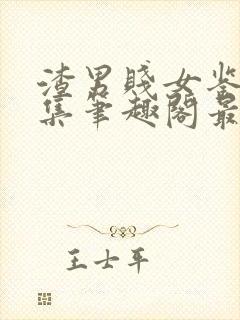 渣男賤女鉴
集笔趣閣最
王士平